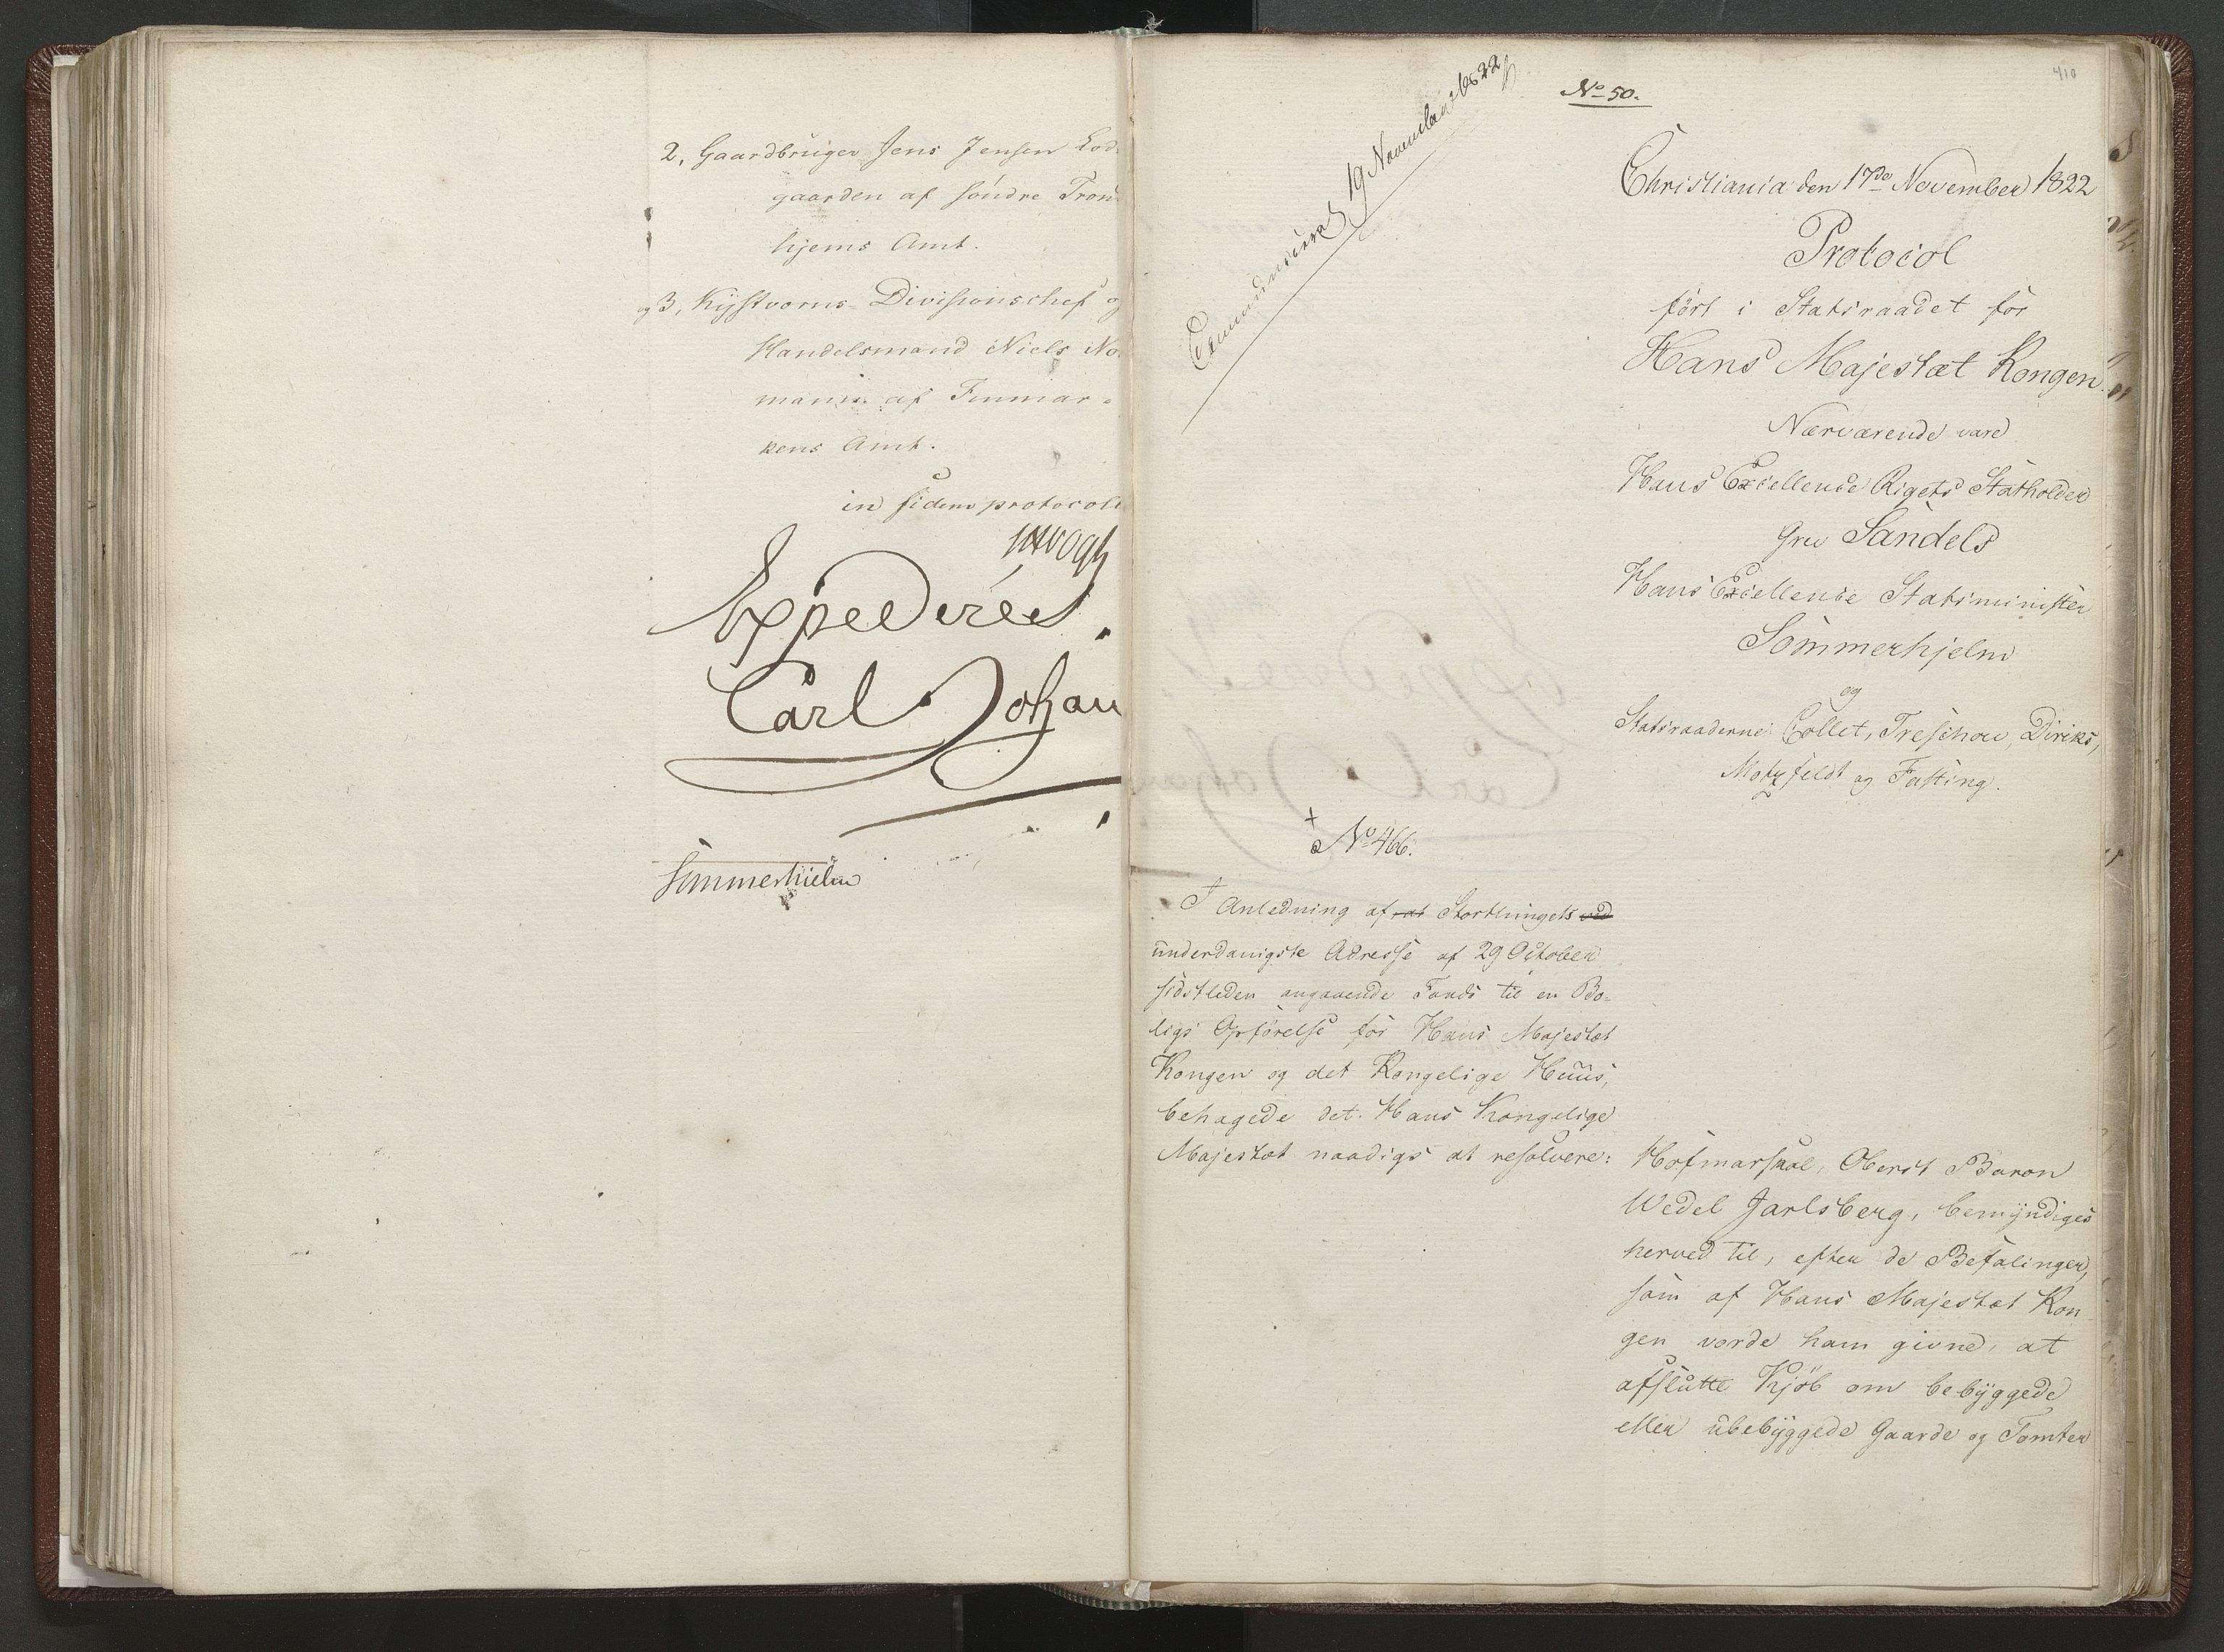 2, Gaardbruger Jens Jensen Lod
gaarden af söndre Tron
hjems Amt.
og 3, Kystværns-Divisionschef og
Handelsmand Niels No
mann af Finmar-
kens Amt.
in fidem protocolli
Expederes.
Carl Johan
Sommerhielm
410
No 50.
19 November 1822
Christiania den 17de November 1822
Protocol
fört i Statsraadet for
Hans Majestæt Kongen.
Nærværende vare
Hans Excellence Rigets Statholder
Grev Sandels
Hans Excellence Statsminister
Sommerhjelm
og
Statsraaderne Collet, Treschow, Diriks,
Motzfeldt og Fasting.
+
No 466.
I Anledning af at Storthingets ved
underdanigste Adresse af 29 October
sidstleden angaaende Fonds til en Bo-
ligs Opförelse for Hans Majestæt
Kongen og det Kongelige Huus,
behagede det Hans Kongelige
Majestæt naadigst at resolvere:
Hofmarskal, Oberst Baron
Wedel Jarlsberg, bemyndiges
herved til, efter de Befalinger,
som af Hans Majestæt Kon
gen vorde ham givne, at
afslutte Kjöb om bebyggede
eller ubebyggede Gaarde og Tomter